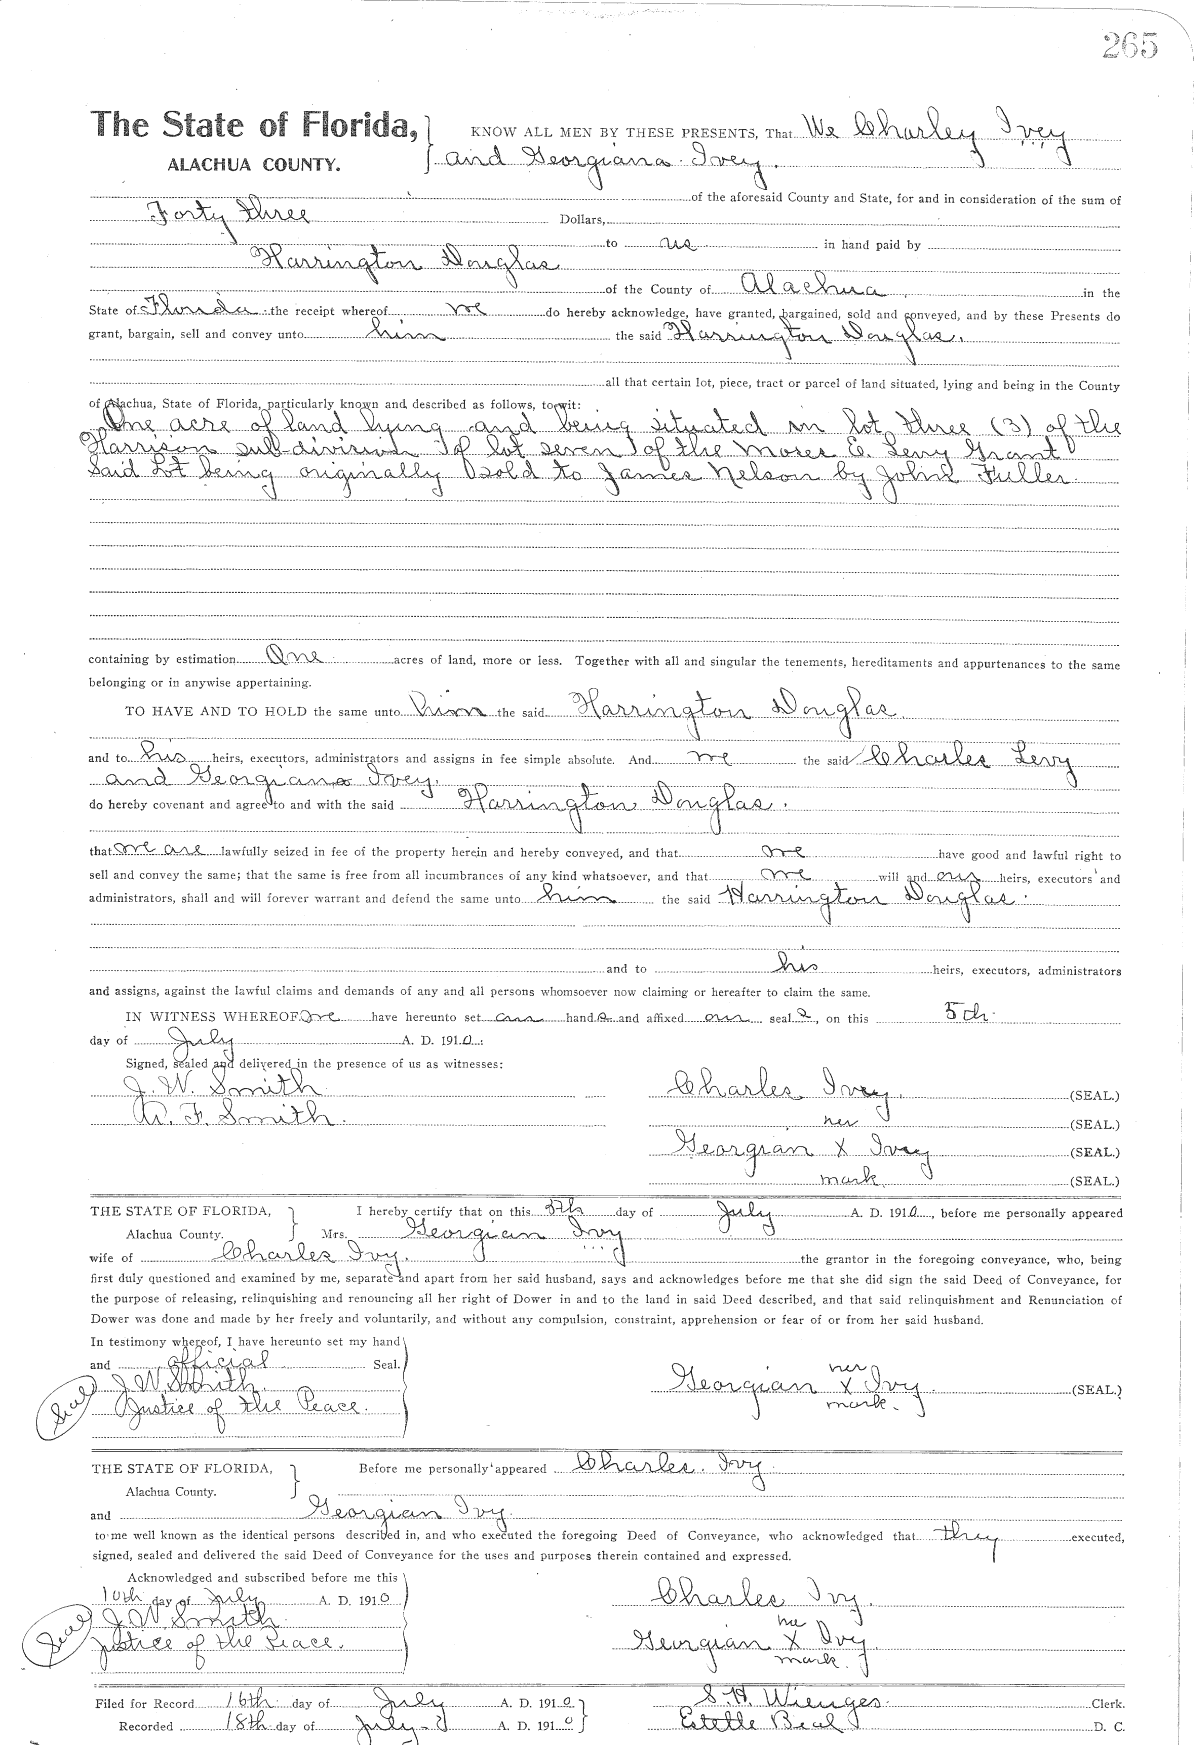 265
The State of Florida, KNOW ALL MEN BY THESE PRESENTS, That We Charley Ivey
ALACHUA COUNTY. and Georgiana Ivey.
of the aforesaid County and State, for and in consideration of the sum of
Forty three Dollars,
to us in hand paid by
Harrington Douglas
of the County of Alachua in the
State of Florida the receipt whereof we do hereby acknowledge, have granted, bargained, sold and conveyed, and by these Presents do
grant, bargain, sell and convey unto him the said Harrington Douglas.
all that certain lot, piece, tract or parcel of land situated, lying and being in the County
of Alachua, State of Florida, particularly known and described as follows, to wit:
One acre of land lying and being situated in lot three (3) of the
Harrison sub-division of lot seven of the Moses E. Levy Grant
Said Lot being originally sold to James Nelson by John Fuller.
containing by estimation One acres of land, more or less. Together with all and singular the tenements, hereditaments and appurtenances to the same
belonging or in anywise appertaining.
TO HAVE AND TO HOLD the same unto him the said Harrington Douglas
and to his heirs, executors, administrators and assigns in fee simple absolute. And we the said Charles Levy
and Georgiana Ivey.
do hereby covenant and agree to and with the said Harrington Douglas.
that we are lawfully seized in fee of the property herein and hereby conveyed, and that we have good and lawful right to
sell and convey the same; that the same is free from all incumbrances of any kind whatsoever, and that we will and our heirs, executors and
administrators, shall and will forever warrant and defend the same unto him the said Harrington Douglas.
and to his heirs, executors, administrators
and assigns, against the lawful claims and demands of any and all persons whomsoever now claiming or hereafter to claim the same.
IN WITNESS WHEREOF, we have hereunto set our hands and affixed our seals, on this 5th
day of July A. D. 1910.
Signed, sealed and delivered in the presence of us as witnesses:
J. W. Smith Charles Ivey. (SEAL.)
W. F. Smith. her (SEAL.)
Georgian X Ivey (SEAL.)
mark. (SEAL.)
THE STATE OF FLORIDA, I hereby certify that on this 5th day of July A. D. 1910, before me personally appeared
Alachua County. Mrs. Georgian Ivy
wife of Charles Ivy. the grantor in the foregoing conveyance, who, being
first duly questioned and examined by me, separate and apart from her said husband, says and acknowledges before me that she did sign the said Deed of Conveyance, for
the purpose of releasing, relinquishing and renouncing all her right of Dower in and to the land in said Deed described, and that said relinquishment and Renunciation of
Dower was done and made by her freely and voluntarily, and without any compulsion, constraint, apprehension or fear of or from her said husband.
In testimony whereof, I have hereunto set my hand
and official Seal. her
Seal J. W. Smith Georgian X Ivy. (SEAL.)
Justice of the Peace. mark.
THE STATE OF FLORIDA, Before me personally appeared Charles Ivy
Alachua County.
and Georgian Ivy
to me well known as the identical persons described in, and who executed the foregoing Deed of Conveyance, who acknowledged that they executed,
signed, sealed and delivered the said Deed of Conveyance for the uses and purposes therein contained and expressed.
Acknowledged and subscribed before me this
10th day of July A. D. 1910 Charles Ivy.
Seal J. W. Smith her
Justice of the Peace. Georgian X Ivy
mark.
Filed for Record 16th day of July A. D. 1910 S. H. Wienges Clerk.
Recorded 18th day of July A. D. 1910 Estelle Beal D. C.